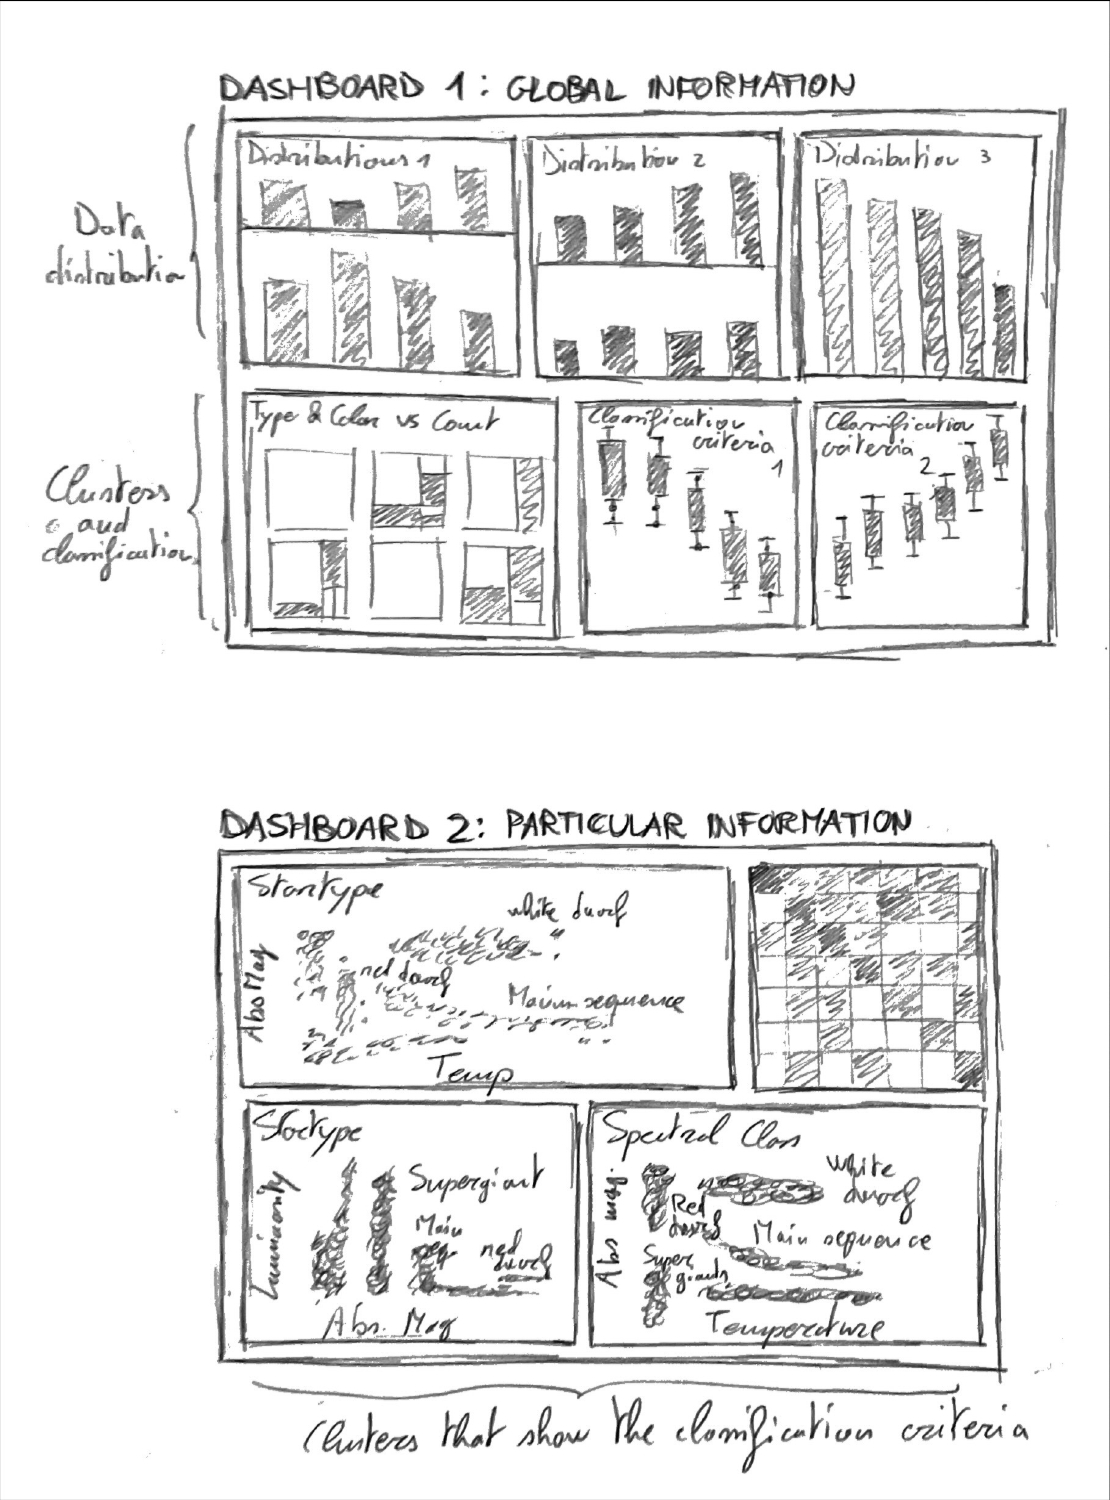 DASHBOARD 1: GLOBAL INFORMATION
Data
distribution
Distributions 1
Distribution 2
Distribution 3
Clusters
and
classification
Type & Color vs Count
Classification
criteria
1
Classification
criteria
2
DASHBOARD 2: PARTICULAR INFORMATION
Startype
white dwarf
Abs Mag
red dwarf
Main sequence
Temp
Startype
Luminosity
Supergiant
Main
seq.
red
dwarf
Abs. Mag
Spectral Class
Abs mag.
White
dwarf
Red
dwarf
Main sequence
Super
giants
Temperature
Clusters that show the classification criteria